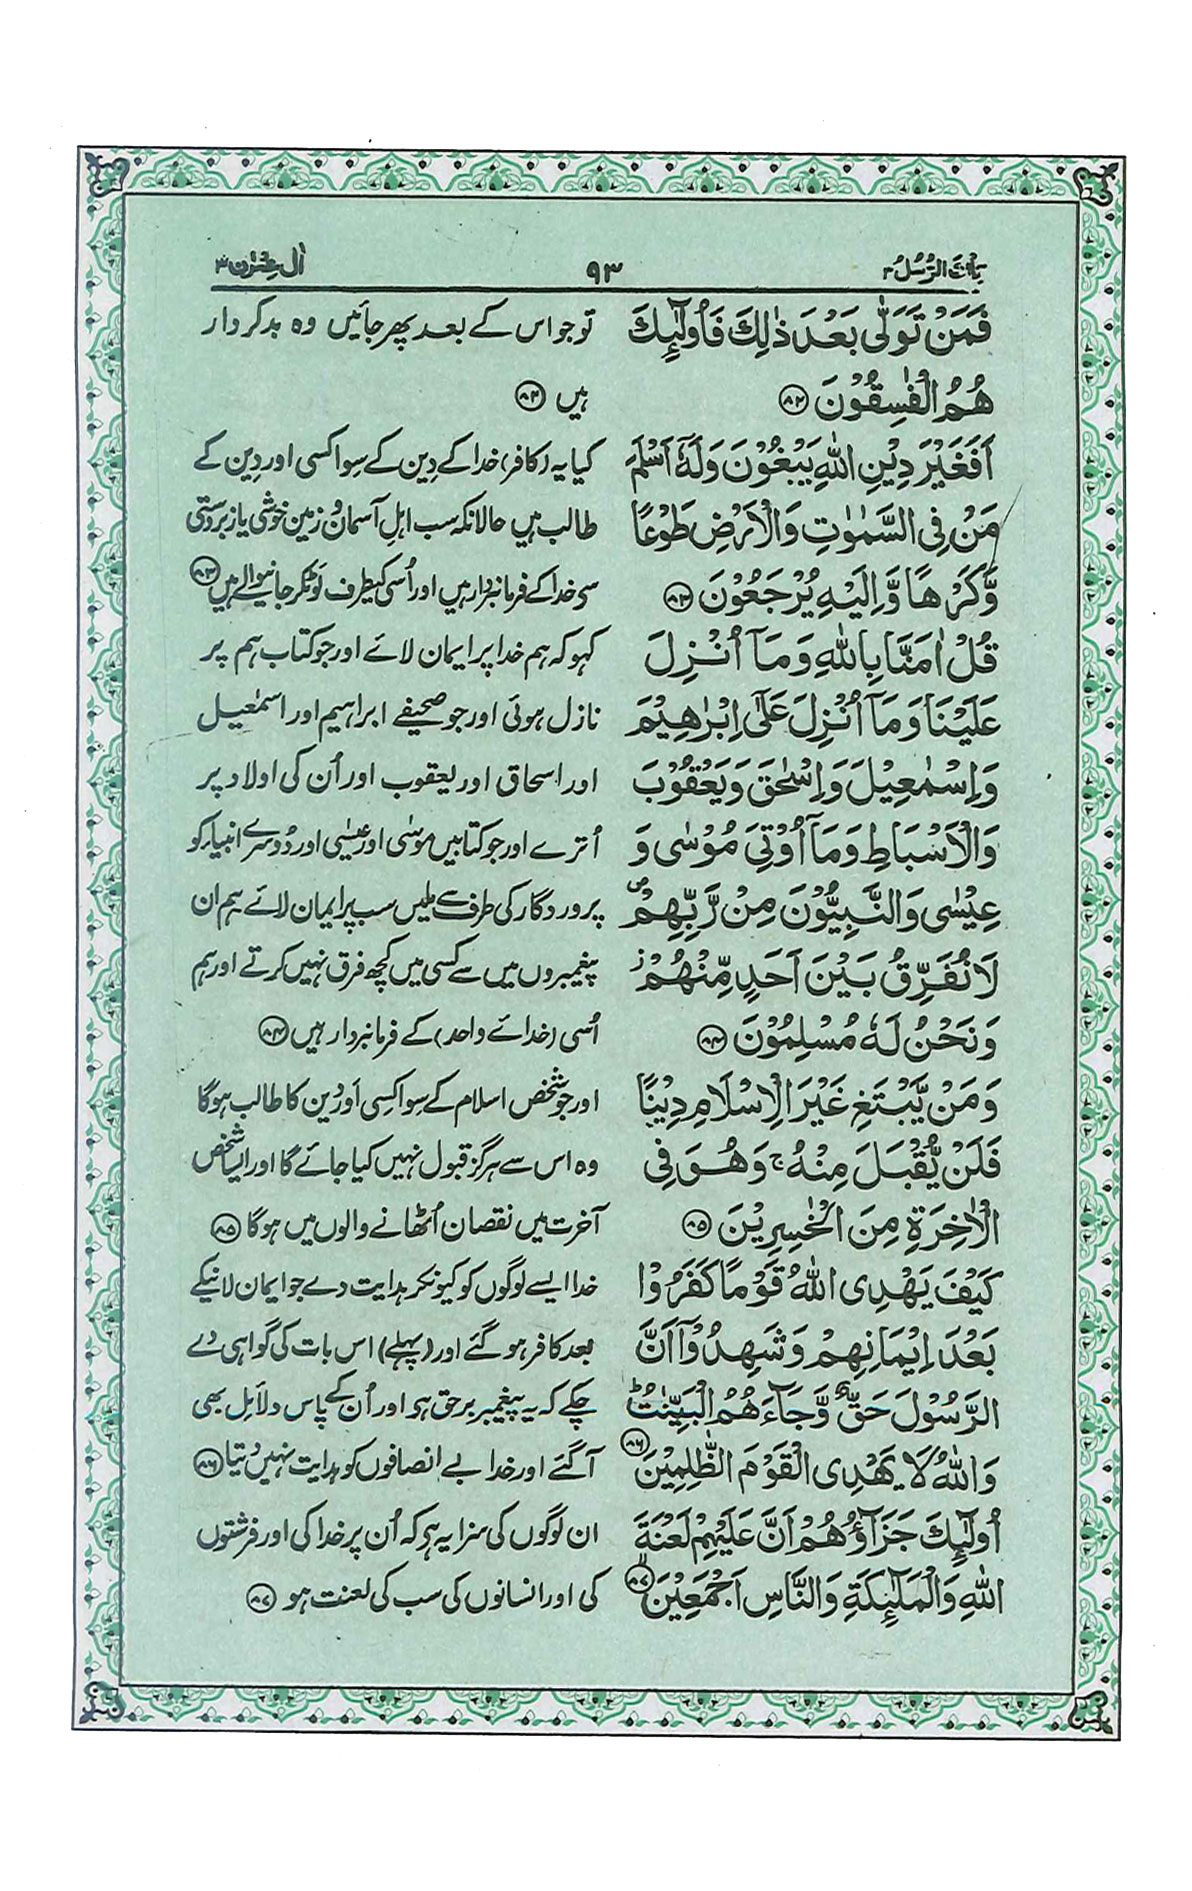 تِلْكَ الرُّسُلُ ۳
۹۳
اٰلِ عِمْرٰن ۳
فَمَنْ تَوَلّٰى بَعْدَ ذٰلِكَ فَاُولٰٓئِكَ
هُمُ الْفٰسِقُوْنَ ﴿۸۲﴾
اَفَغَيْرَ دِيْنِ اللّٰهِ يَبْغُوْنَ وَلَهٗۤ اَسْلَمَ
مَنْ فِى السَّمٰوٰتِ وَالْاَرْضِ طَوْعًا
وَّكَرْهًا وَّاِلَيْهِ يُرْجَعُوْنَ ﴿۸۳﴾
قُلْ اٰمَنَّا بِاللّٰهِ وَمَاۤ اُنْزِلَ
عَلَيْنَا وَمَاۤ اُنْزِلَ عَلٰٓى اِبْرٰهِيْمَ
وَاِسْمٰعِيْلَ وَاِسْحٰقَ وَيَعْقُوْبَ
وَالْاَسْبَاطِ وَمَاۤ اُوْتِىَ مُوْسٰى وَ
عِيْسٰى وَالنَّبِيُّوْنَ مِنْ رَّبِّهِمْ ۪
لَا نُفَرِّقُ بَيْنَ اَحَدٍ مِّنْهُمْ ؗ
وَنَحْنُ لَهٗ مُسْلِمُوْنَ ﴿۸۴﴾
وَمَنْ يَّبْتَغِ غَيْرَ الْاِسْلَامِ دِيْنًا
فَلَنْ يُّقْبَلَ مِنْهُ ۚ وَهُوَ فِى
الْاٰخِرَةِ مِنَ الْخٰسِرِيْنَ ﴿۸۵﴾
كَيْفَ يَهْدِى اللّٰهُ قَوْمًا كَفَرُوْا
بَعْدَ اِيْمَانِهِمْ وَشَهِدُوْۤا اَنَّ
الرَّسُوْلَ حَقٌّ وَّجَآءَهُمُ الْبَيِّنٰتُ ؕ
وَاللّٰهُ لَا يَهْدِى الْقَوْمَ الظّٰلِمِيْنَ ﴿۸۶﴾
اُولٰٓئِكَ جَزَآؤُهُمْ اَنَّ عَلَيْهِمْ لَعْنَةَ
اللّٰهِ وَالْمَلٰٓئِكَةِ وَالنَّاسِ اَجْمَعِيْنَ ۙ﴿۸۷﴾
تو جو اس کے بعد پھر جائیں وہ بدکردار
ہیں ﴿۸۲﴾
کیا یہ (کافر) خدا کے دِین کے سِوا کسی اور دِین کے
طالب ہیں حالانکہ سب اہلِ آسمان و زمین خوشی یا زبردستی
سے خدا کے فرمانبردار ہیں اور اُسی کیطرف لَوٹ کر جانیوالے ہیں ﴿۸۳﴾
کہو کہ ہم خدا پر ایمان لائے اور جو کتاب ہم پر
نازل ہوئی اور جو صحیفے ابراہیم اور اسمٰعیل
اور اسحاق اور یعقوب اور اُن کی اولاد پر
اُترے اور جو کتابیں موسٰی اور عیسٰی اور دُوسرے انبیاء کو
پروردگار کی طرف سے ملیں سب پر ایمان لائے ہم ان
پیغمبروں میں سے کسی میں کچھ فرق نہیں کرتے اور ہم
اُسی (خدائے واحد) کے فرمانبردار ہیں ﴿۸۴﴾
اور جو شخص اسلام کے سِوا کسِی اَور دِین کا طالب ہوگا
وہ اس سے ہرگز قبول نہیں کیا جائے گا اور ایسا شخص
آخرت میں نقصان اُٹھانے والوں میں ہوگا ﴿۸۵﴾
خدا ایسے لوگوں کو کیونکر ہدایت دے جو ایمان لانیکے
بعد کافر ہو گئے اور (پہلے) اس بات کی گواہی دے
چکے کہ یہ پیغمبر برحق ہے اور اُن کے پاس دلائل بھی
آ گئے اور خدا بے انصافوں کو ہدایت نہیں دیتا ﴿۸۶﴾
ان لوگوں کی سزا یہ ہے کہ اُن پر خدا کی اور فرشتوں
کی اور انسانوں کی سب کی لعنت ہو ﴿۸۷﴾